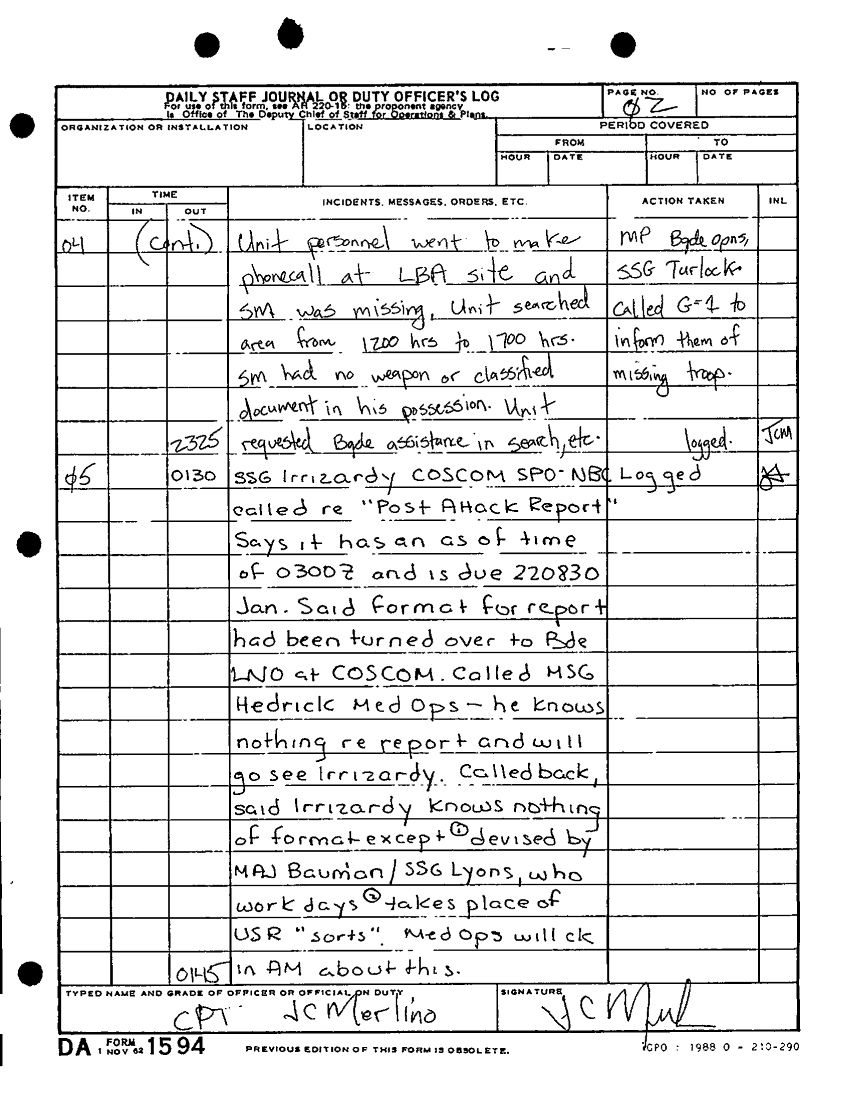 DAILY STAFF JOURNAL OR DUTY OFFICER'S LOG
For use of this form, see AR 220-15: the proponent agency
is Office of The Deputy Chief of Staff for Operations & Plans.
PAGE NO.
02
NO OF PAGES
ORGANIZATION OR INSTALLATION
LOCATION
PERIOD COVERED
FROM
TO
HOUR DATE HOUR DATE
ITEM NO.
TIME
IN OUT
INCIDENTS, MESSAGES, ORDERS, ETC.
ACTION TAKEN
INL
04 (Cont.) Unit personnel went to make MP Bgde opns,
phonecall at LBA site and SSG Turlock
SM was missing, Unit searched called G-1 to
area from 1200 hrs to 1700 hrs. inform them of
SM had no weapon or classified missing troop.
document in his possession. Unit
2325 requested Bgde assistance in search, etc. logged. JCM
05 0130 SSG Irrizardy COSCOM SPO-NBC Logged
called re "Post Attack Report"
Says it has an as of time
of 0300Z and is due 220830
Jan. Said format for report
had been turned over to Bde
LNO at COSCOM. Called MSG
Hedrick Med Ops - he knows
nothing re report and will
go see Irrizardy. Called back,
said Irrizardy knows nothing
of format except ① devised by
MAJ Bauman/SSG Lyons, who
work days ② takes place of
USR "sorts". Med Ops will ck
0145 in AM about this.
TYPED NAME AND GRADE OF OFFICER OR OFFICIAL ON DUTY
CPT JC Merlino
SIGNATURE
DA FORM 1 NOV 62 1594
PREVIOUS EDITION OF THIS FORM IS OBSOLETE.
GPO : 1988 O - 210-290